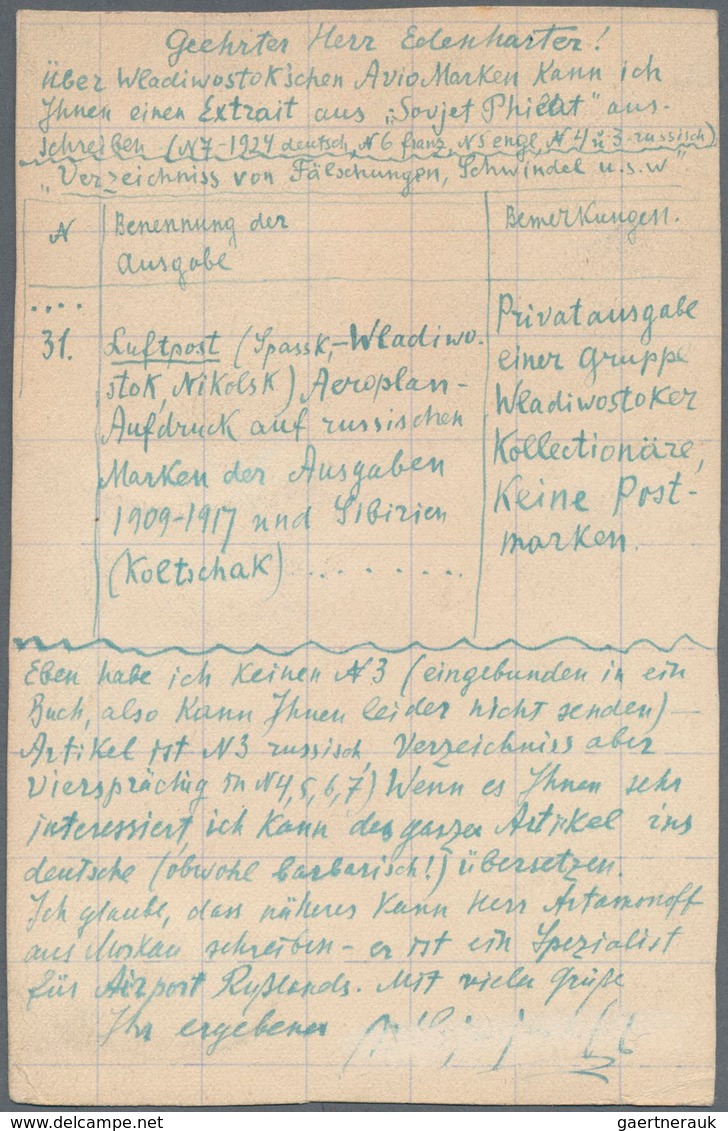 Geehrter Herr Edenharter!
Über Wladiwostok'schen AvioMarken kann ich
Ihnen einen Extrait aus „Sovjet Philat" aus-
schreiben (N7-1924 deutsch, N6 franz, N5 engl, N4 u 3 russisch)
„Verzeichniss von Fälschungen, Schwindel u.s.w"
N
Benennung der
Ausgabe
Bemerkungen.
....
31.
Luftpost (Spassk,-Wladiwo-
stok, Nikolsk) Aeroplan-
Aufdruck auf russischen
Marken der Ausgaben
1909-1917 und Sibirien
(Koltschak) ........
Privatausgabe
einer Gruppe
Wladiwostoker
Kollectionäre,
Keine Post-
marken.
Eben habe ich keinen N3 (eingebunden in ein
Buch, also kann Ihnen leider nicht senden) —
Artikel ist N3 russisch, Verzeichniss aber
viersprächig in N4,5,6,7) Wenn es Ihnen sehr
interessiert, ich kann den ganzen Artikel ins
deutsche (obwohl barbarisch!) übersetzen.
Ich glaube, dass näheres kann Herr Artamonoff
aus Moskau schreiben - er ist ein Spezialist
für Airport Rußlands. Mit vielen Grüße
Ihr ergebener
gaertnerauk